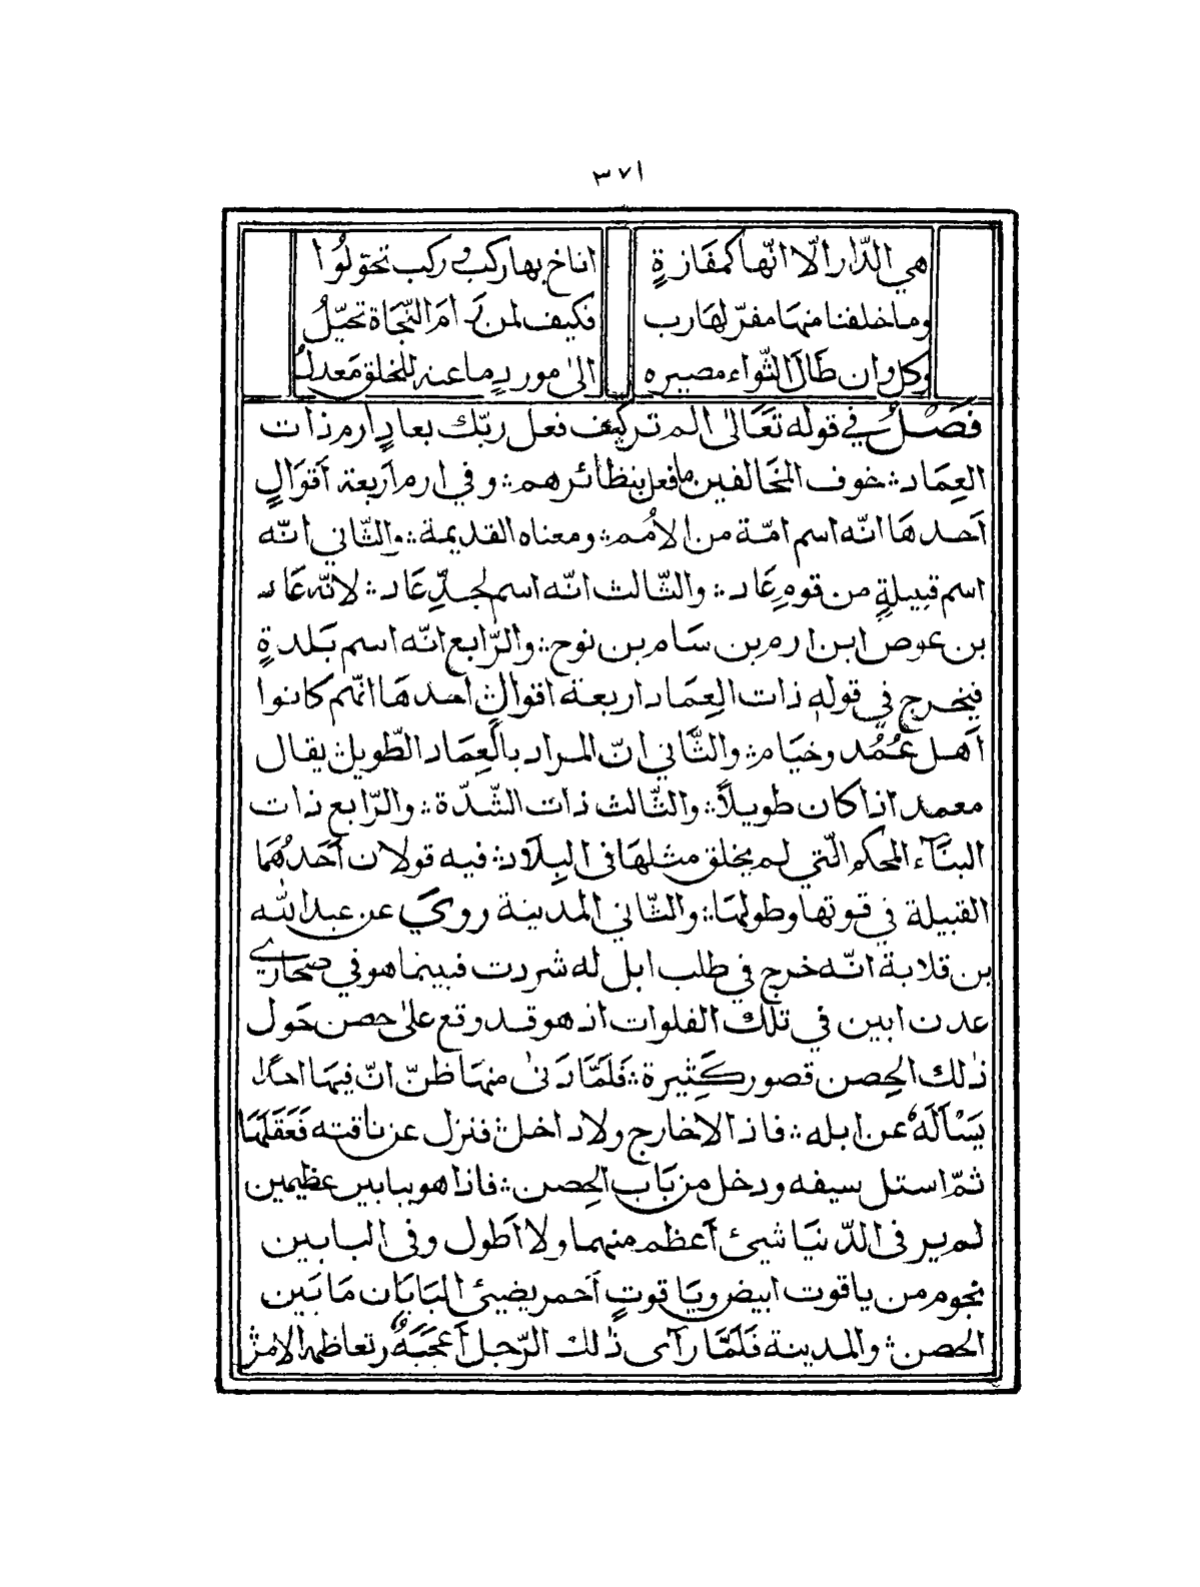 ٣٧١
هي الدّار الّا انّها كمفازةٍ اناخ بها ركب و ركب تحوّلُوا
وما خلفنا منهَا مفرّ لهَارب فكيف لمن رَامَ النّجَاة تحيّلُ
وكل وان طَالَ الثّواء مصيره الىٰ موردٍ ما عنه للخلق مَعدلُ
فَصْلٌ في قوله تَعَالىٰ الم تر كيف فعل ربّك بعادٍ ارم ذات
العِمَاد ؞ خوف المخَالفين ما فعل بنظائرهم ؞ وفي ارم اَربعة اَقوَالٍ
اَحدهَا انّه اسم امّة من الاُمُم ؞ ومعناه القديمة ؞ والثّاني انّه
اسم قبيلةٍ من قومِ عَاد ؞ والثّالث انّه اسم لجدِّ عَاد ؞ لانّه عَاد
بن عوص ابن ارم بن سَام بن نوح ؞ والرّابع انّه اسم بَلدةٍ
فيخرج في قوله ذات العِمَاد اربعة اقوالٍ احدهَا انّهم كانوا
اَهل عُمُد وخيَام ؞ والثَّاني انّ المراد بالعِمَاد الطّويل ؞ يقال
معمد اذا كان طويلاً ؞ والثّالث ذات الشّدّة ؞ والرّابع ذات
البنَآء المحكم الّتي لم يخلق مثلهَا في البِلَاد ؞ فيه قولان اَحَدُهُمَا
القبيلة في قوتها وطولهَا ؞ والثّاني المدينة روي عن عبد الله
بن قلابة انّه خرج في طلب ابل له شردت فبينما هو في صحَاري
عدن ابين في تلك الفلوات اذ هو قد وقع علىٰ حصن حَول
ذٰلك الحِصن قصور كَثِيرة ؞ فَلَمَّا دَنىٰ منهَا ظنّ انّ فيهَا احدًا
يَسْأَلَهُ عن ابله ؞ فاذ الا خارج ولا داخل ؞ فنزل عن ناقته فَعَقَلَهَا
ثمّ استل سيفه ودخل من بَاب الحِصن ؞ فاذا هو ببابين عظيمين
لم ير في الدّنيَا شيئ اَعظم منهما ولا اَطول وفي البابين
نجوم من ياقوت ابيض ويَاقوتٍ اَحمر يضيئ البَابَان مَا بَين
الحصن ؞ والمدينة فَلَمَّا رَآى ذٰلك الرّجل اَعجَبَهُ وتعاظمه الامرُ